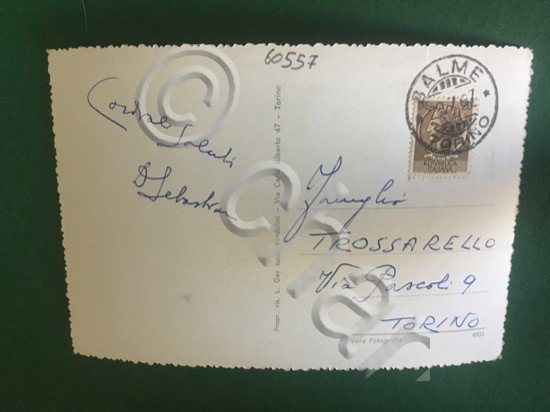 60557
BALME
TORINO
ITALIANA
Cordiali Saluti
D. Sebastiano
Famiglia
TROSSARELLO
Via Pascoli 9
TORINO
Propr. ris. L. Gay
Via Carlo Alberto 47 - Torino
Vera Fotografia
4901